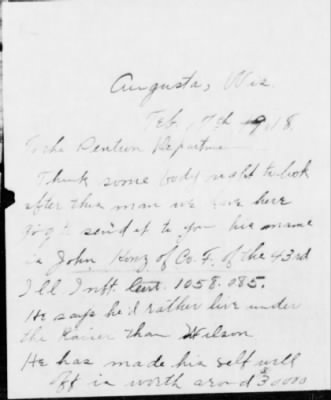 Augusta, Wis.
Feb. 17th 1918.
To the Pention Departme
Think some body ought to look
after this man we have here
send it to you his name
is John Konz of Co. F. of the 43rd
Ill Inft. Cert. 1058.085.
He says he'd rather live under
the Kaiser than Wilson
He has made his self well
off is worth arond $30000